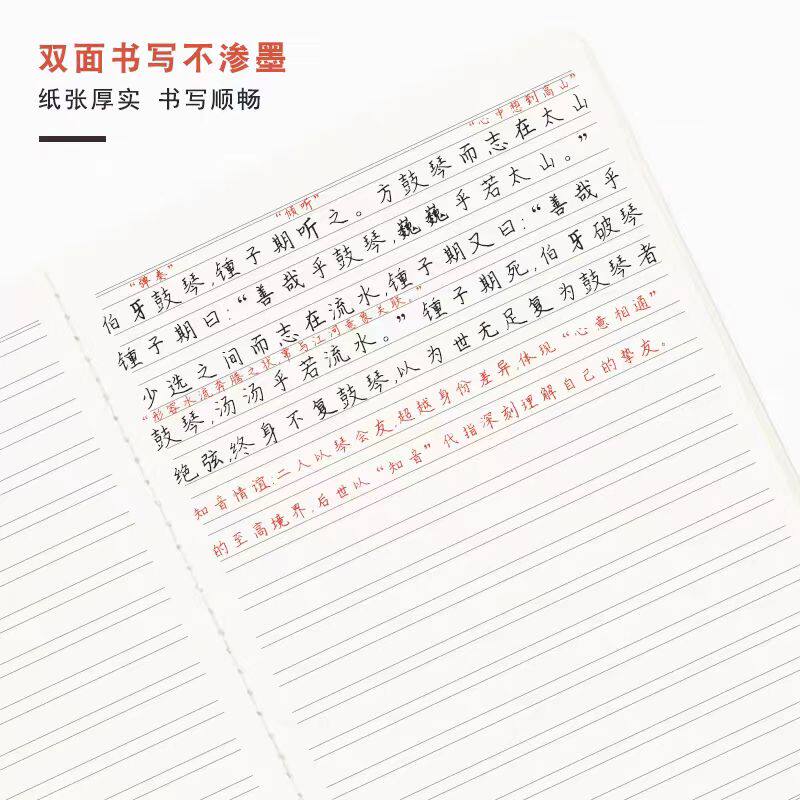 双面书写不渗墨
纸张厚实 书写顺畅
“弹奏” “倾听” “心中想到高山”
伯牙鼓琴,锺子期听之。方鼓琴而志在太山
锺子期曰:“善哉乎鼓琴,巍巍乎若太山。”
少选之间而志在流水,锺子期又曰:“善哉乎
“形容水流奔腾之状,常与江河意象关联。”
鼓琴,汤汤乎若流水。”锺子期死,伯牙破琴
绝弦,终身不复鼓琴,以为世无足复为鼓琴者
知音情谊:二人以琴会友,超越身份差异,体现“心意相通”
的至高境界,后世以“知音”代指深刻理解自己的挚友。